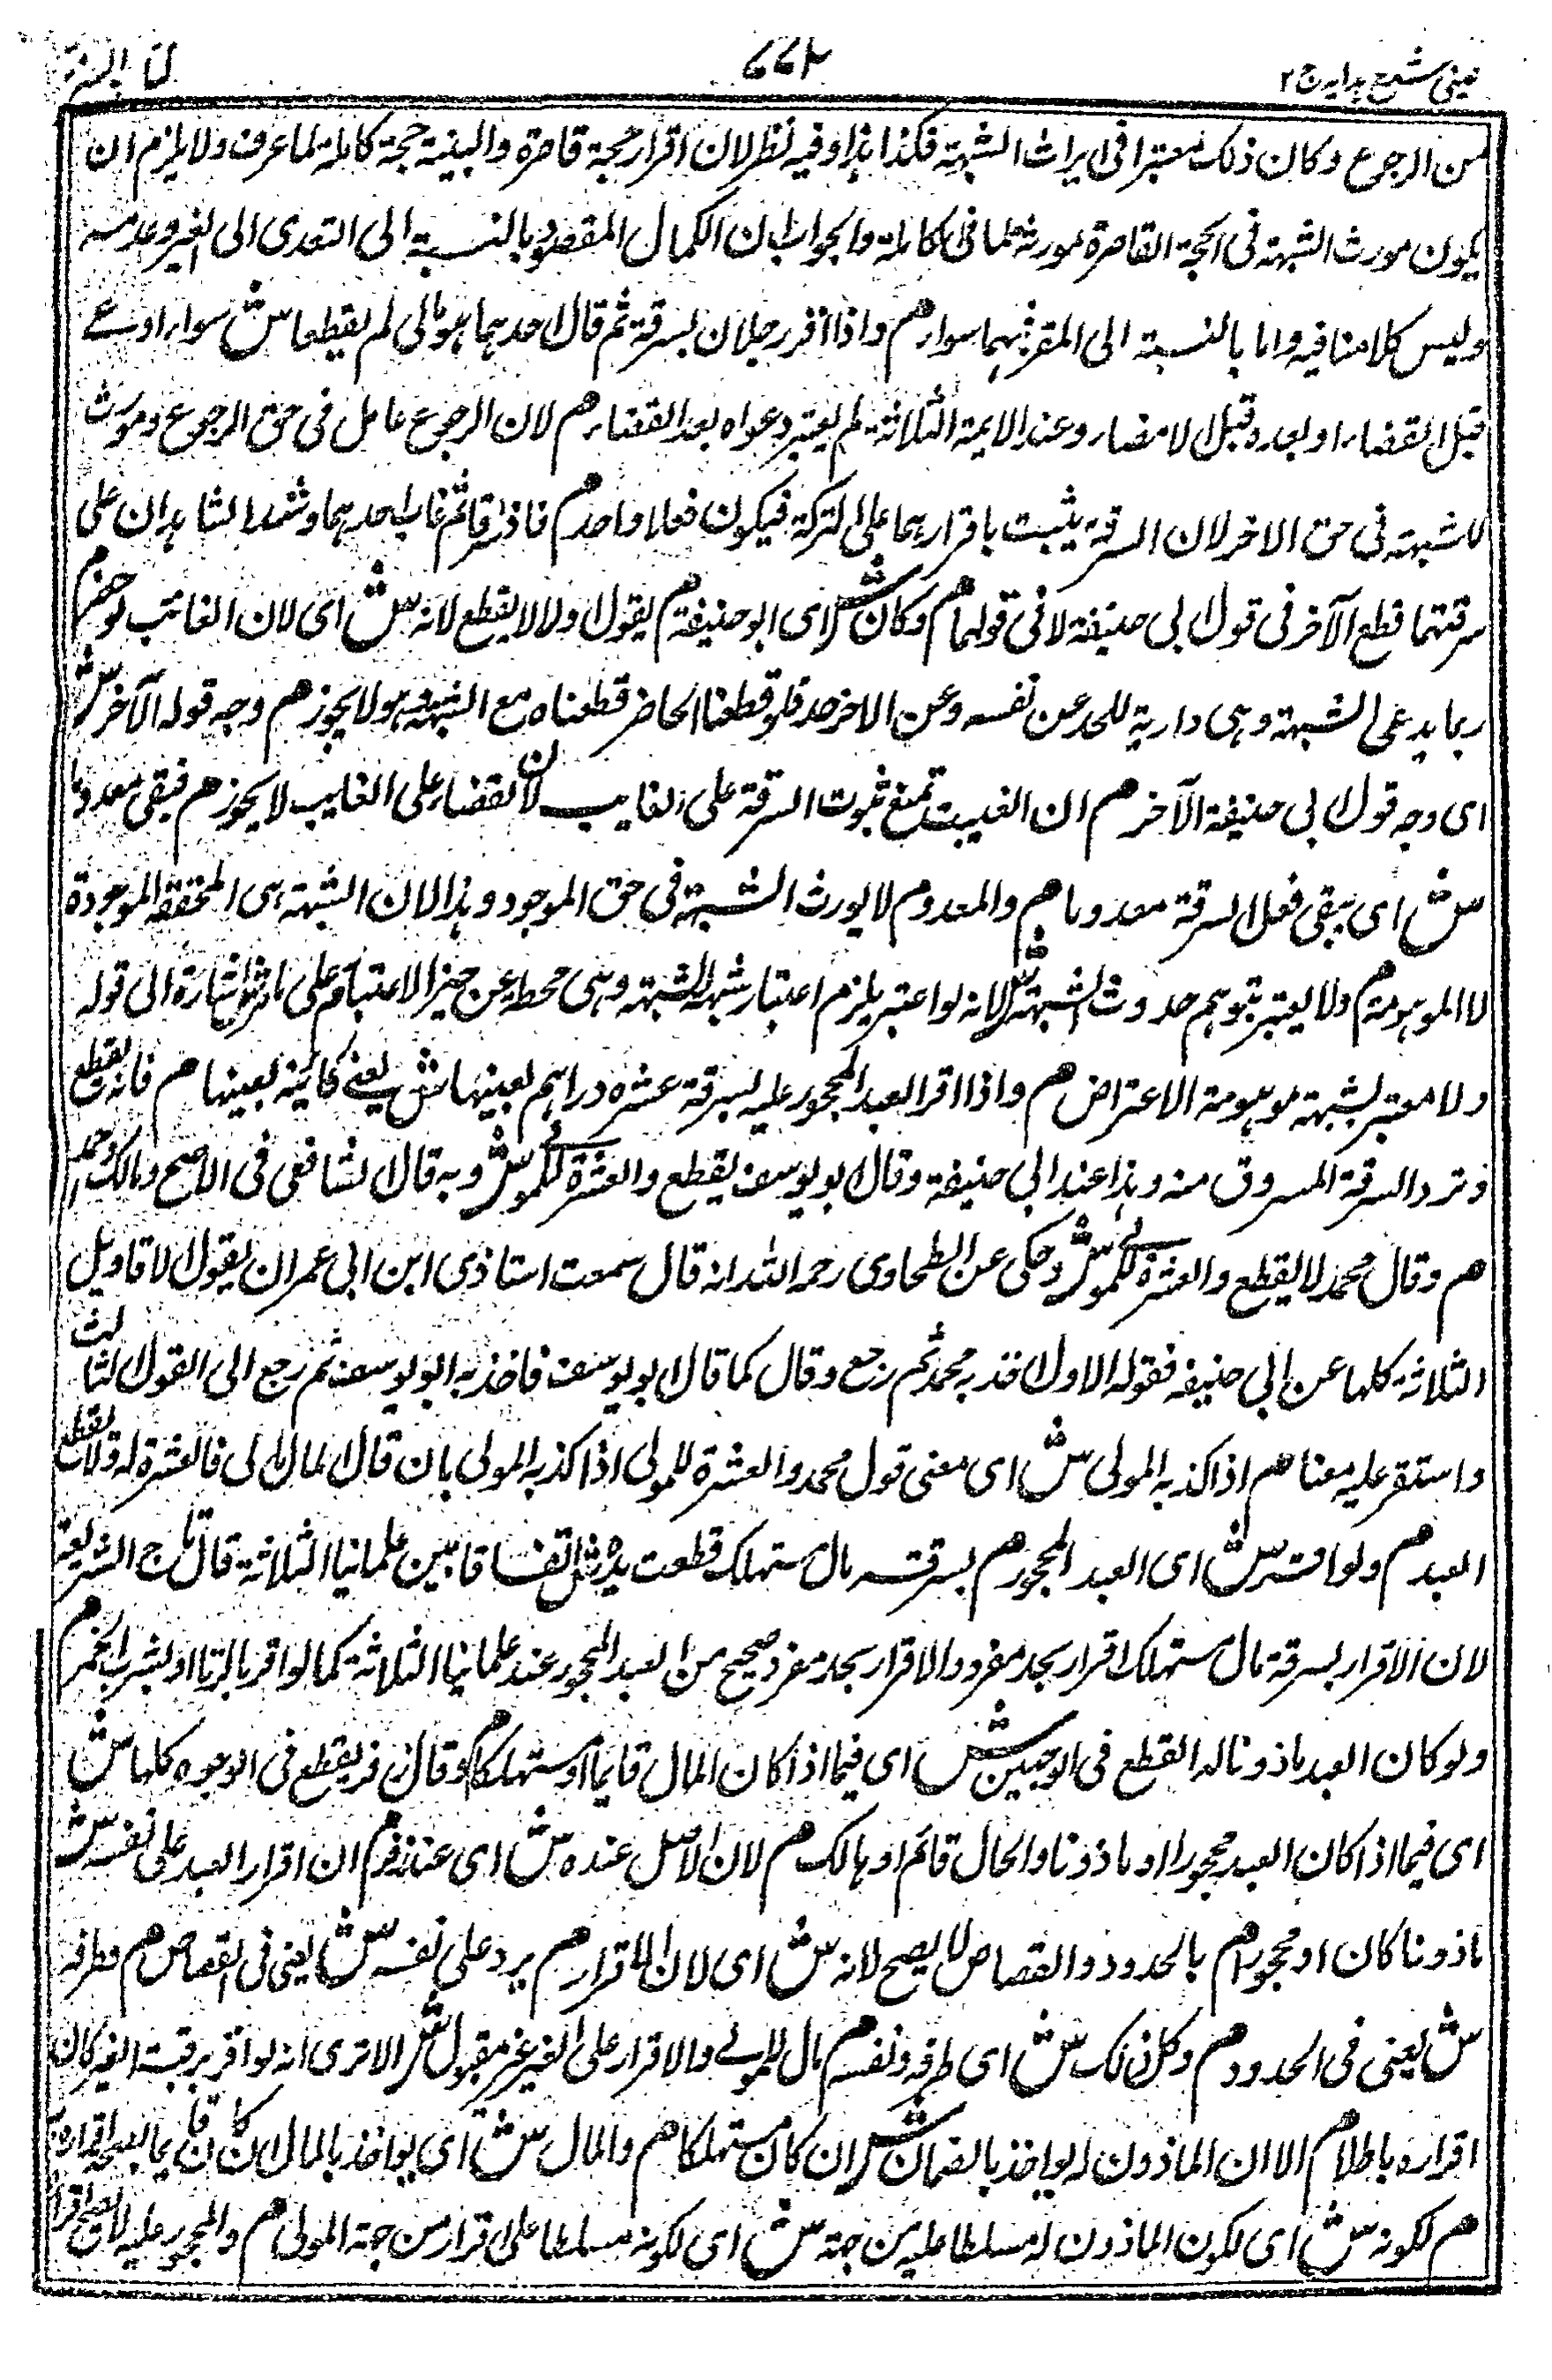 عینی شرح ہدایہ ج ۲
۷۷۲
من الرجوع وکان ذلک معتبرا فی ایراث الشبهة فکذا ہذا وفیه نظر لان اقرار حجة قاصرة والبینة حجة کاملة لما عرف ولا یلزم ان
یکون مورث الشبهة فی الحجة القاصرة مورثة لما فی کاملة والجواب ان الکمال المقصود بالنسبة الی التعدی الی الغیر وعدمه
ولیس کلامنا فیه واما بالنسبة الی المقر فہما سواء م واذا اقر رجلان بسرقة ثم قال احدہما ہو مالی لم یقطعا ش سواء ادعی
قبل القضاء او بعده قبل الامضاء وعند الایمة الثلاثة لم یعتبر دعواه بعد القضاء م لان الرجوع عامل فی حق الرجوع ومورث
لا شبهة فی حق الاخر لان السرقة یثبت باقرارہما علی الشرکة فیکون فعلا واحدا م فاذا سرقا ثم غاب احدہما وشہد الشاہدان علی
سرقتہما قطع الآخر فی قول ابی حنیفة لا فی قولہما م وکان ش ای ابو حنیفة م یقول اولا لا یقطع لانه ش ای لان الغائب لو حضر م
ربما یدعی الشبهة وہی داریة للحد عن نفسه وعن الاخر حد فلو قطعنا الحاضر قطعناه مع الشبهة ولا یجوز م وجه قوله الآخر ش
ای وجه قول ابی حنیفة الآخر م ان الغیبة تمنع ثبوت السرقة علی الغایب لان القضاء علی الغایب لا یجوز م فیبقی معدوما
ش ای یبقی فعل السرقة معدوما م والمعدوم لا یورث الشبهة فی حق الموجود وہذا لان الشبهة ہی المحققة الموجودة
لا الموہومة م ولا یعتبر بتوہم حدوث الشبهة ش لانه لو اعتبر یلزم اعتبار شبهة الشبهة وہی محطة عن حیز الاعتبار م علی ما مر ش اشارة الی قوله
ولا معتبر بشبهة موہومة الاعتراض م واذا اقر العبد المحجور علیه بسرقة عشرة دراہم بعینہا ش یعنی کائنة بعینہا م فانه یقطع
وترد السرقة المسروق منه وہذا عند ابی حنیفة وقال ابو یوسف یقطع والعشرة للمولی ش وبه قال الشافعی فی الاصح ومالک واحمد
م وقال محمد لا یقطع والعشرة للمولی ش وحکی عن الطحاوی رحمه الله انه قال سمعت استاذی ابن ابی عمران یقول الاقاویل
الثلاثة کلہا عن ابی حنیفه فقوله الاول اخذ به محمد ثم رجع وقال کما قال ابو یوسف فاخذ به ابو یوسف ثم رجع الی القول الثالث
واستقر علیه معنا م اذا کذبه المولی ش ای معنی قول محمد والعشرة للمولی اذا کذبه المولی بان قال المال مالی فالعشرة له ولا یقطع
العبد م ولو اقر ش ای العبد المحجور م بسرقة مال مستہلک قطعت یده ش اتفاقا بین علمائنا الثلاثة قال تاج الشریعة
لان الاقرار بسرقة مال مستہلک اقرار بحد مفرد والاقرار بحد مفرد صحیح من العبد المحجور عند علمائنا الثلاثة کما لو اقر بالزنا او بشرب الخمر م
ولو کان العبد ماذونا له القطع فی الوجہین ش ای فیما اذا کان المال قایما او مستہلکا م وقال زفر یقطع فی الوجوه کلہا ش
ای فیما اذا کان العبد محجورا او ماذونا والحال قائم او ہالک م لان الاصل عنده ش ای عند زفر م ان اقرار العبد علی نفسه ش
ماذونا کان او محجورا م بالحدود والقصاص لا یصح لانه ش ای لان الاقرار م یرد علی نفسه ش یعنی فی القصاص م وطرفه
ش یعنی فی الحدود م وکل ذلک ش ای طرفه ونفسه م مال للمولی والاقرار علی الغیر غیر مقبول ش الا تری انه لو اقر برقبة الغیر کان
اقراره باطلا م الا ان الماذون له یواخذ بالضمان ش ان کان مستہلکا م والمال ش ای یواخذ بالمال ان کان قایما لصحة اقراره به
م لکونه ش ای لکون الماذون له مسلطا علیه من جہة ش ای لکونه مسلطا علی الاقرار من جہة المولی م والمحجور علیه لا یصح اقراره